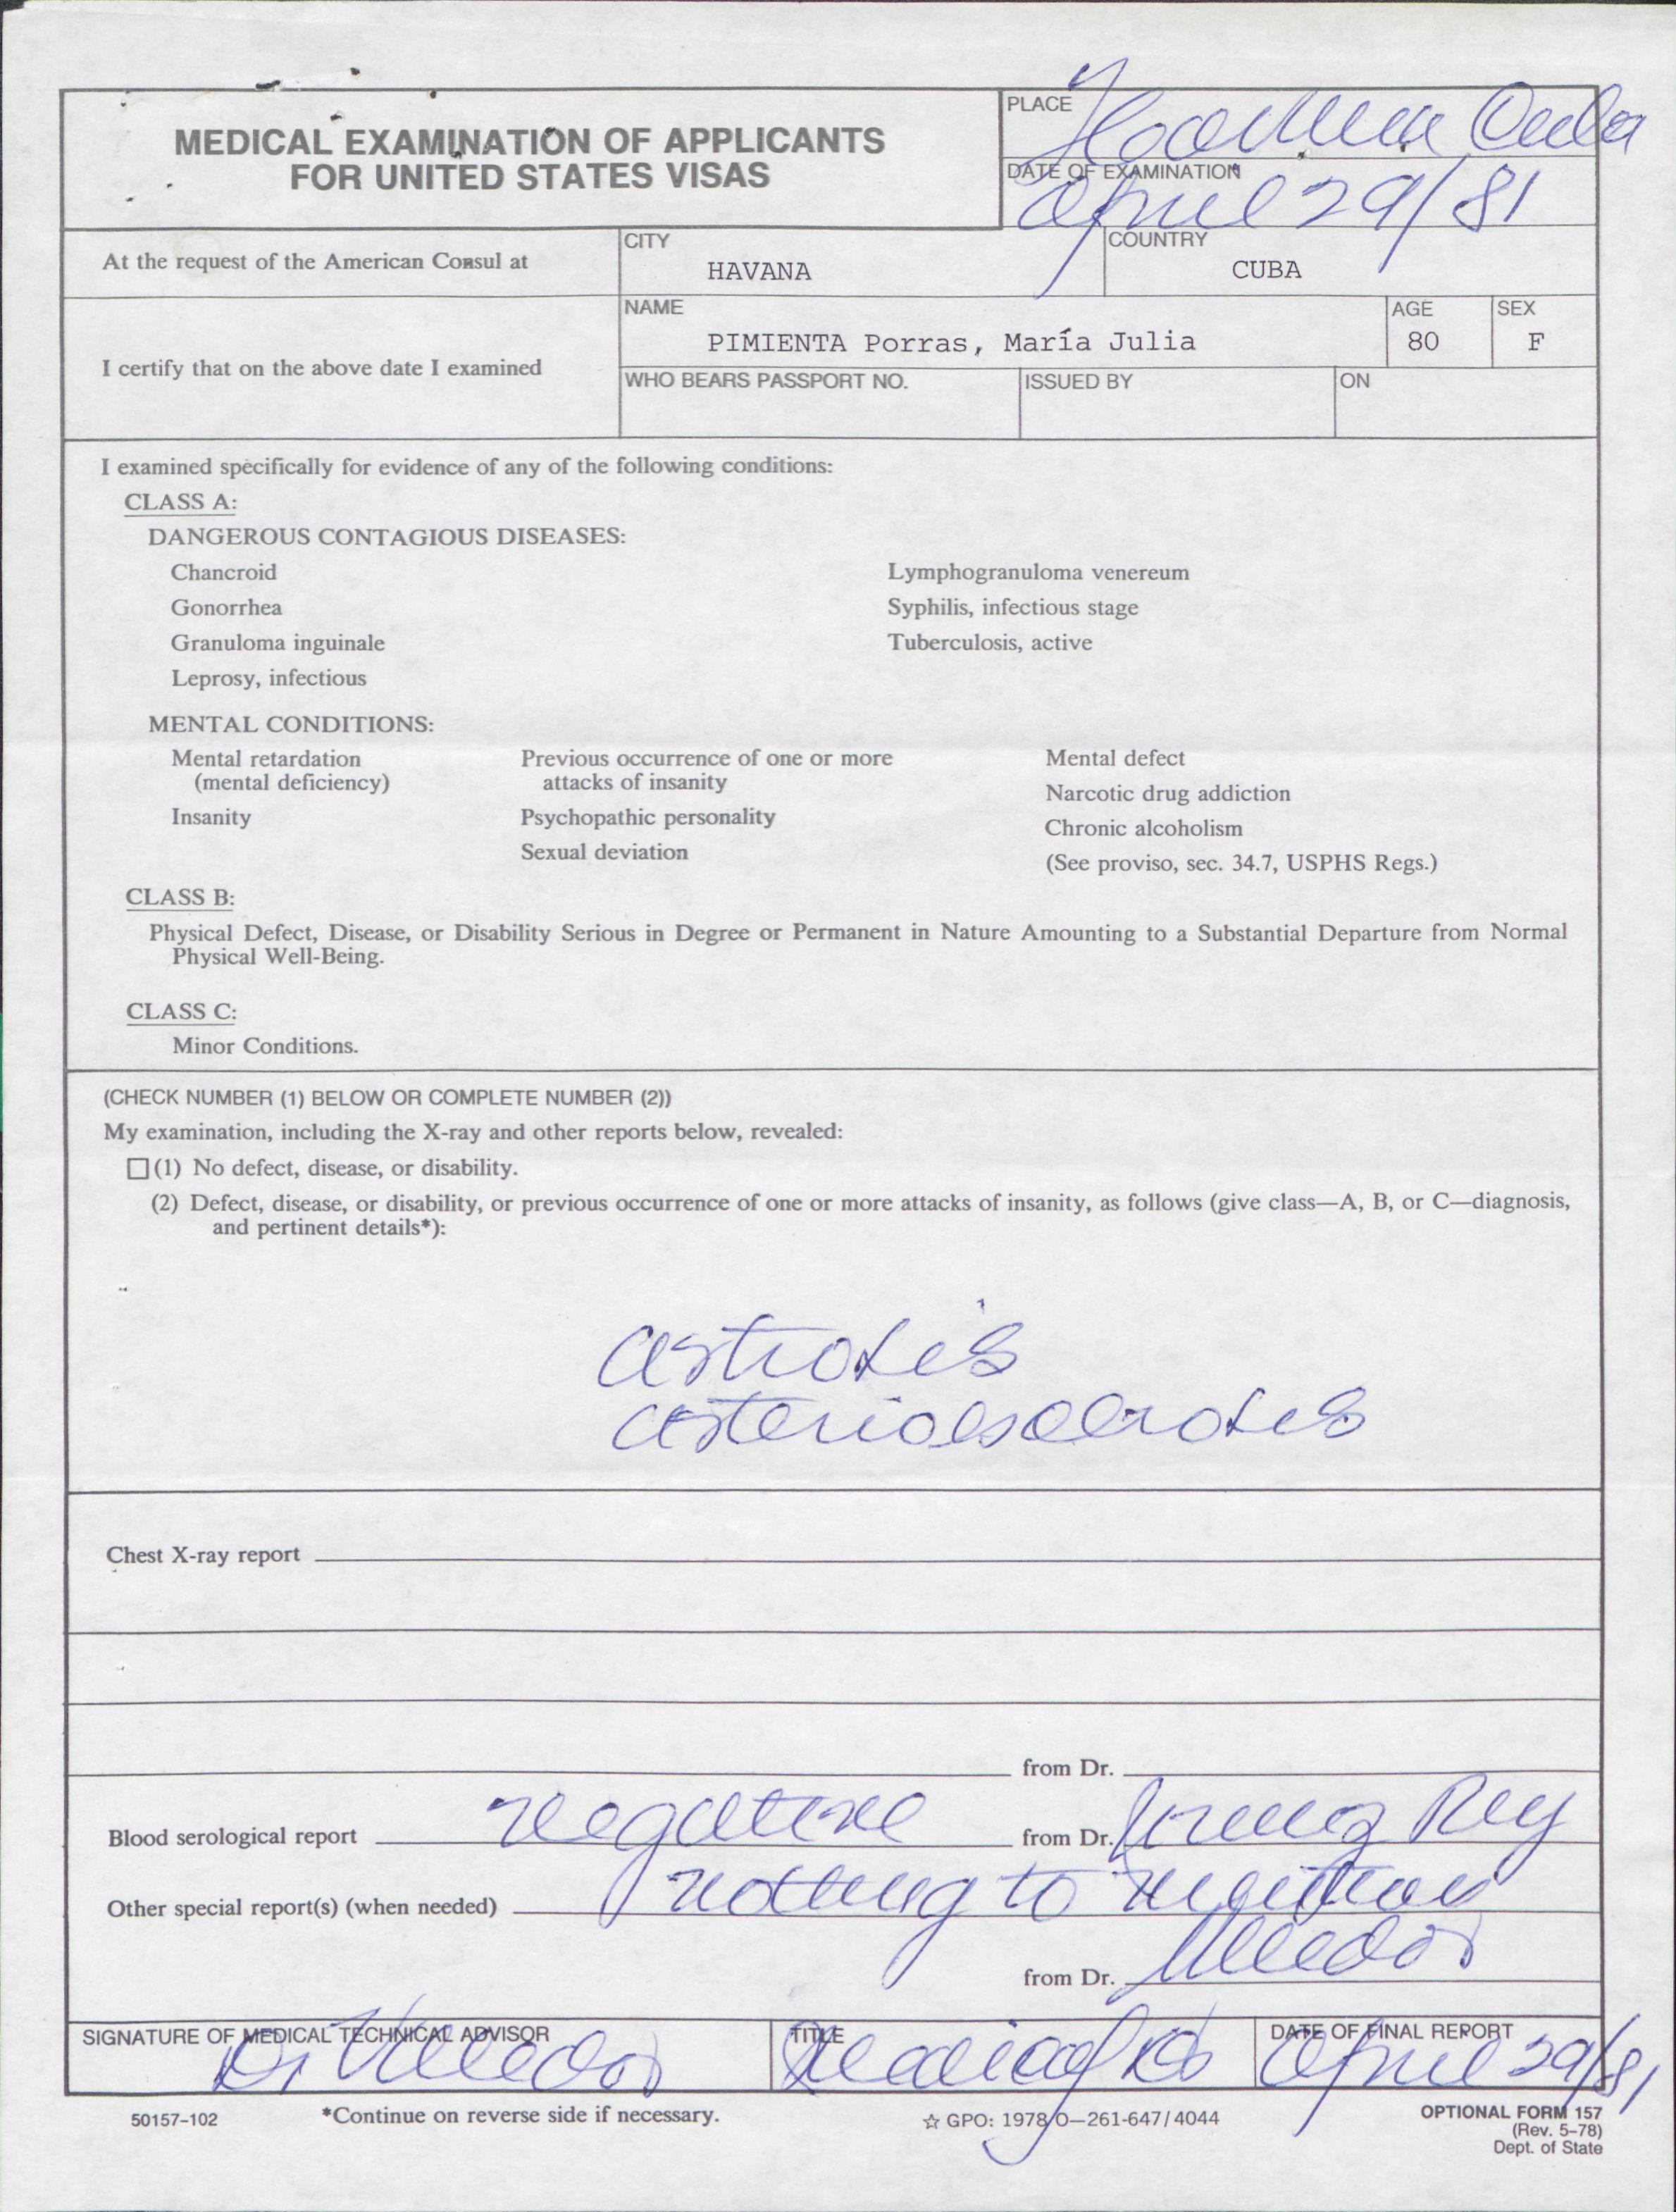 MEDICAL EXAMINATION OF APPLICANTS
FOR UNITED STATES VISAS
PLACE
Cuba
DATE OF EXAMINATION
April 29/81
At the request of the American Consul at
CITY
HAVANA
COUNTRY
CUBA
I certify that on the above date I examined
NAME
PIMIENTA Porras, María Julia
AGE
80
SEX
F
WHO BEARS PASSPORT NO.
ISSUED BY
ON
I examined specifically for evidence of any of the following conditions:
CLASS A:
DANGEROUS CONTAGIOUS DISEASES:
Chancroid
Gonorrhea
Granuloma inguinale
Leprosy, infectious
Lymphogranuloma venereum
Syphilis, infectious stage
Tuberculosis, active
MENTAL CONDITIONS:
Mental retardation
(mental deficiency)
Insanity
Previous occurrence of one or more
attacks of insanity
Psychopathic personality
Sexual deviation
Mental defect
Narcotic drug addiction
Chronic alcoholism
(See proviso, sec. 34.7, USPHS Regs.)
CLASS B:
Physical Defect, Disease, or Disability Serious in Degree or Permanent in Nature Amounting to a Substantial Departure from Normal
Physical Well-Being.
CLASS C:
Minor Conditions.
(CHECK NUMBER (1) BELOW OR COMPLETE NUMBER (2))
My examination, including the X-ray and other reports below, revealed:
(1) No defect, disease, or disability.
(2) Defect, disease, or disability, or previous occurrence of one or more attacks of insanity, as follows (give class—A, B, or C—diagnosis,
and pertinent details*):
Chest X-ray report
from Dr.
Blood serological report negative from Dr. Rey
Other special report(s) (when needed) nothing to mention
from Dr.
SIGNATURE OF MEDICAL TECHNICAL ADVISOR
Dr
TITLE
DATE OF FINAL REPORT
April 29/81
50157-102
*Continue on reverse side if necessary.
☆ GPO: 1978 O—261-647/4044
OPTIONAL FORM 157
(Rev. 5-78)
Dept. of State